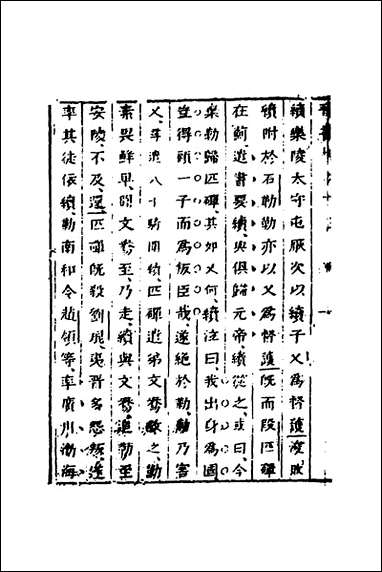 續樂陵太守屯厭次以續子乂為督護浚敗
續附於石勒勒亦以乂為督護既而段匹磾
在薊遺書要續與俱歸元帝續從之或曰今
棄勒歸匹磾其如乂何續泣曰我出身為國
豈得顧一子而為叛臣哉遂絕於勒勒乃害
乂尋遣八千騎圍續匹磾遣弟文鴦救之勒
素畏鮮卑聞文鴦至乃走續與文鴦追勒至
安陵不及還匹磾既殺劉琨夷晉多怨叛遂
率其徒依續勒南和令趙領等率廣川渤海